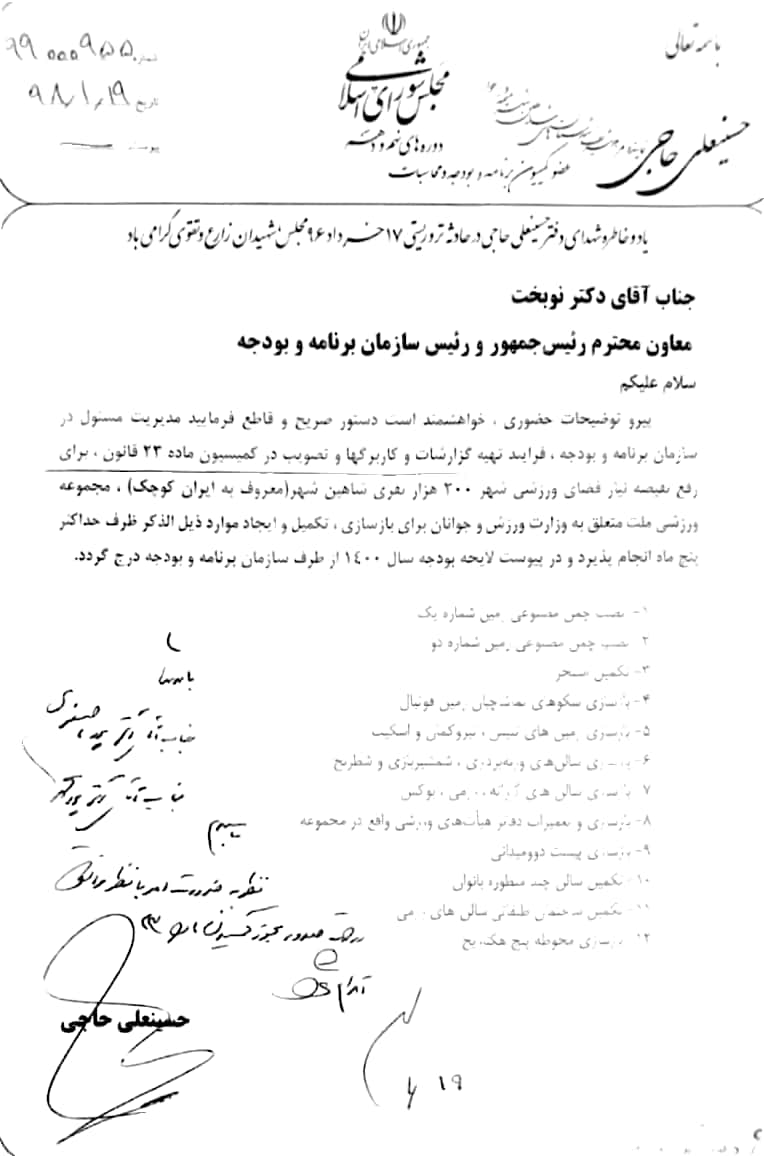 باسمه تعالی
جمهوری اسلامی ایران
مجلس شورای اسلامی
دوره‌های نهم و دهم
شماره: 99000955
تاریخ 98/1/19
پیوست
حسینعلی حاجی
عضو کمیسیون برنامه و بودجه و محاسبات
یاد و خاطره شهدای دفتر حسینعلی حاجی در حادثه تروریستی ۱۷ خرداد ۹۶ مجلس شهیدان زارع و تقوی گرامی باد
جناب آقای دکتر نوبخت
معاون محترم رئیس‌جمهور و رئیس سازمان برنامه و بودجه
سلام علیکم
پیرو توضیحات حضوری ، خواهشمند است دستور صریح و قاطع فرمایید مدیریت مسئول در
سازمان برنامه و بودجه ، فرایند تهیه گزارشات و کاربرگها و تصویب در کمیسیون ماده ۲۳ قانون ، برای
رفع نقیصه نیاز فضای ورزشی شهر ۲۰۰ هزار نفری شاهین شهر(معروف به ایران کوچک) ، مجموعه
ورزشی ملت متعلق به وزارت ورزش و جوانان برای بازسازی ، تکمیل و ایجاد موارد ذیل الذکر ظرف حداکثر
پنج ماه انجام پذیرد و در پیوست لایحه بودجه سال ۱۴۰۰ از طرف سازمان برنامه و بودجه درج گردد.
۱- نصب چمن مصنوعی زمین شماره یک
۲- نصب چمن مصنوعی زمین شماره دو
۳- تکمیل استخر
۴- بازسازی سکوهای تماشاچیان زمین فوتبال
۵- بازسازی زمین های تنیس ، تیروکمان و اسکیت
۶- بازسازی سالن‌های وزنه‌برداری ، شمشیربازی و شطرنج
۷- بازسازی سالن های کاراته ، رزمی ، بوکس
۸- بازسازی و تعمیرات دفاتر هیأت‌های ورزشی واقع در مجموعه
۹- بازسازی پیست دوومیدانی
۱۰- تکمیل سالن چند منظوره بانوان
۱۱- تکمیل ساختمان طبقاتی سالن های رزمی
۱۲- بازسازی محوطه پنج هکتاریح
باسمه تعالی
جناب آقای دکتر
جناب آقای دکتر پورمحمدی
نظر به ضرورت امر با نظر موافق
صدور مجوز کمیسیون ماده ۲۳
اقدام
حسینعلی حاجی
۶/۱۹